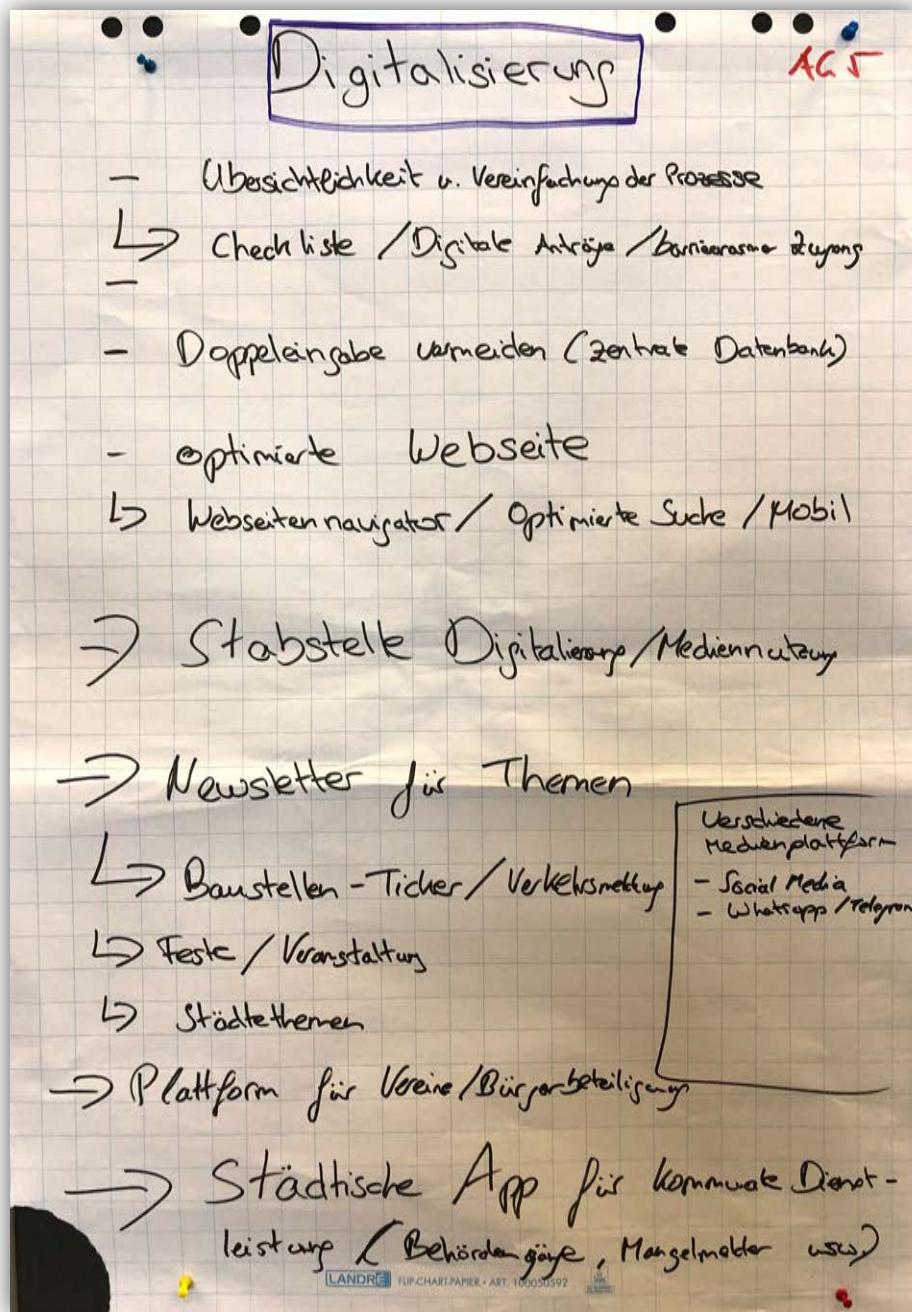 Digitalisierung
AG 5
- Übersichtlichkeit u. Vereinfachung der Prozesse
↳ Checkliste / Digitale Anträge / barrierearmer Zugang
-
- Doppeleingabe vermeiden (zentrale Datenbank)
- optimierte Webseite
↳ Webseitennavigator / Optimierte Suche / Mobil
→ Stabstelle Digitalierung / Mediennutzung
→ Newsletter für Themen
↳ Baustellen-Ticker / Verkehrsmeldung
↳ Feste / Veranstaltung
↳ Städtethemen
Verschiedene
Medienplattform
- Social Media
- Whatsapp / Telegram
→ Plattform für Vereine / Bürgerbeteiligung
→ Städtische App für kommunale Dienst-
leistung (Behördengänge, Mangelmelder usw.)
LANDRÉ FLIP-CHART-PAPIER • ART. 100050592